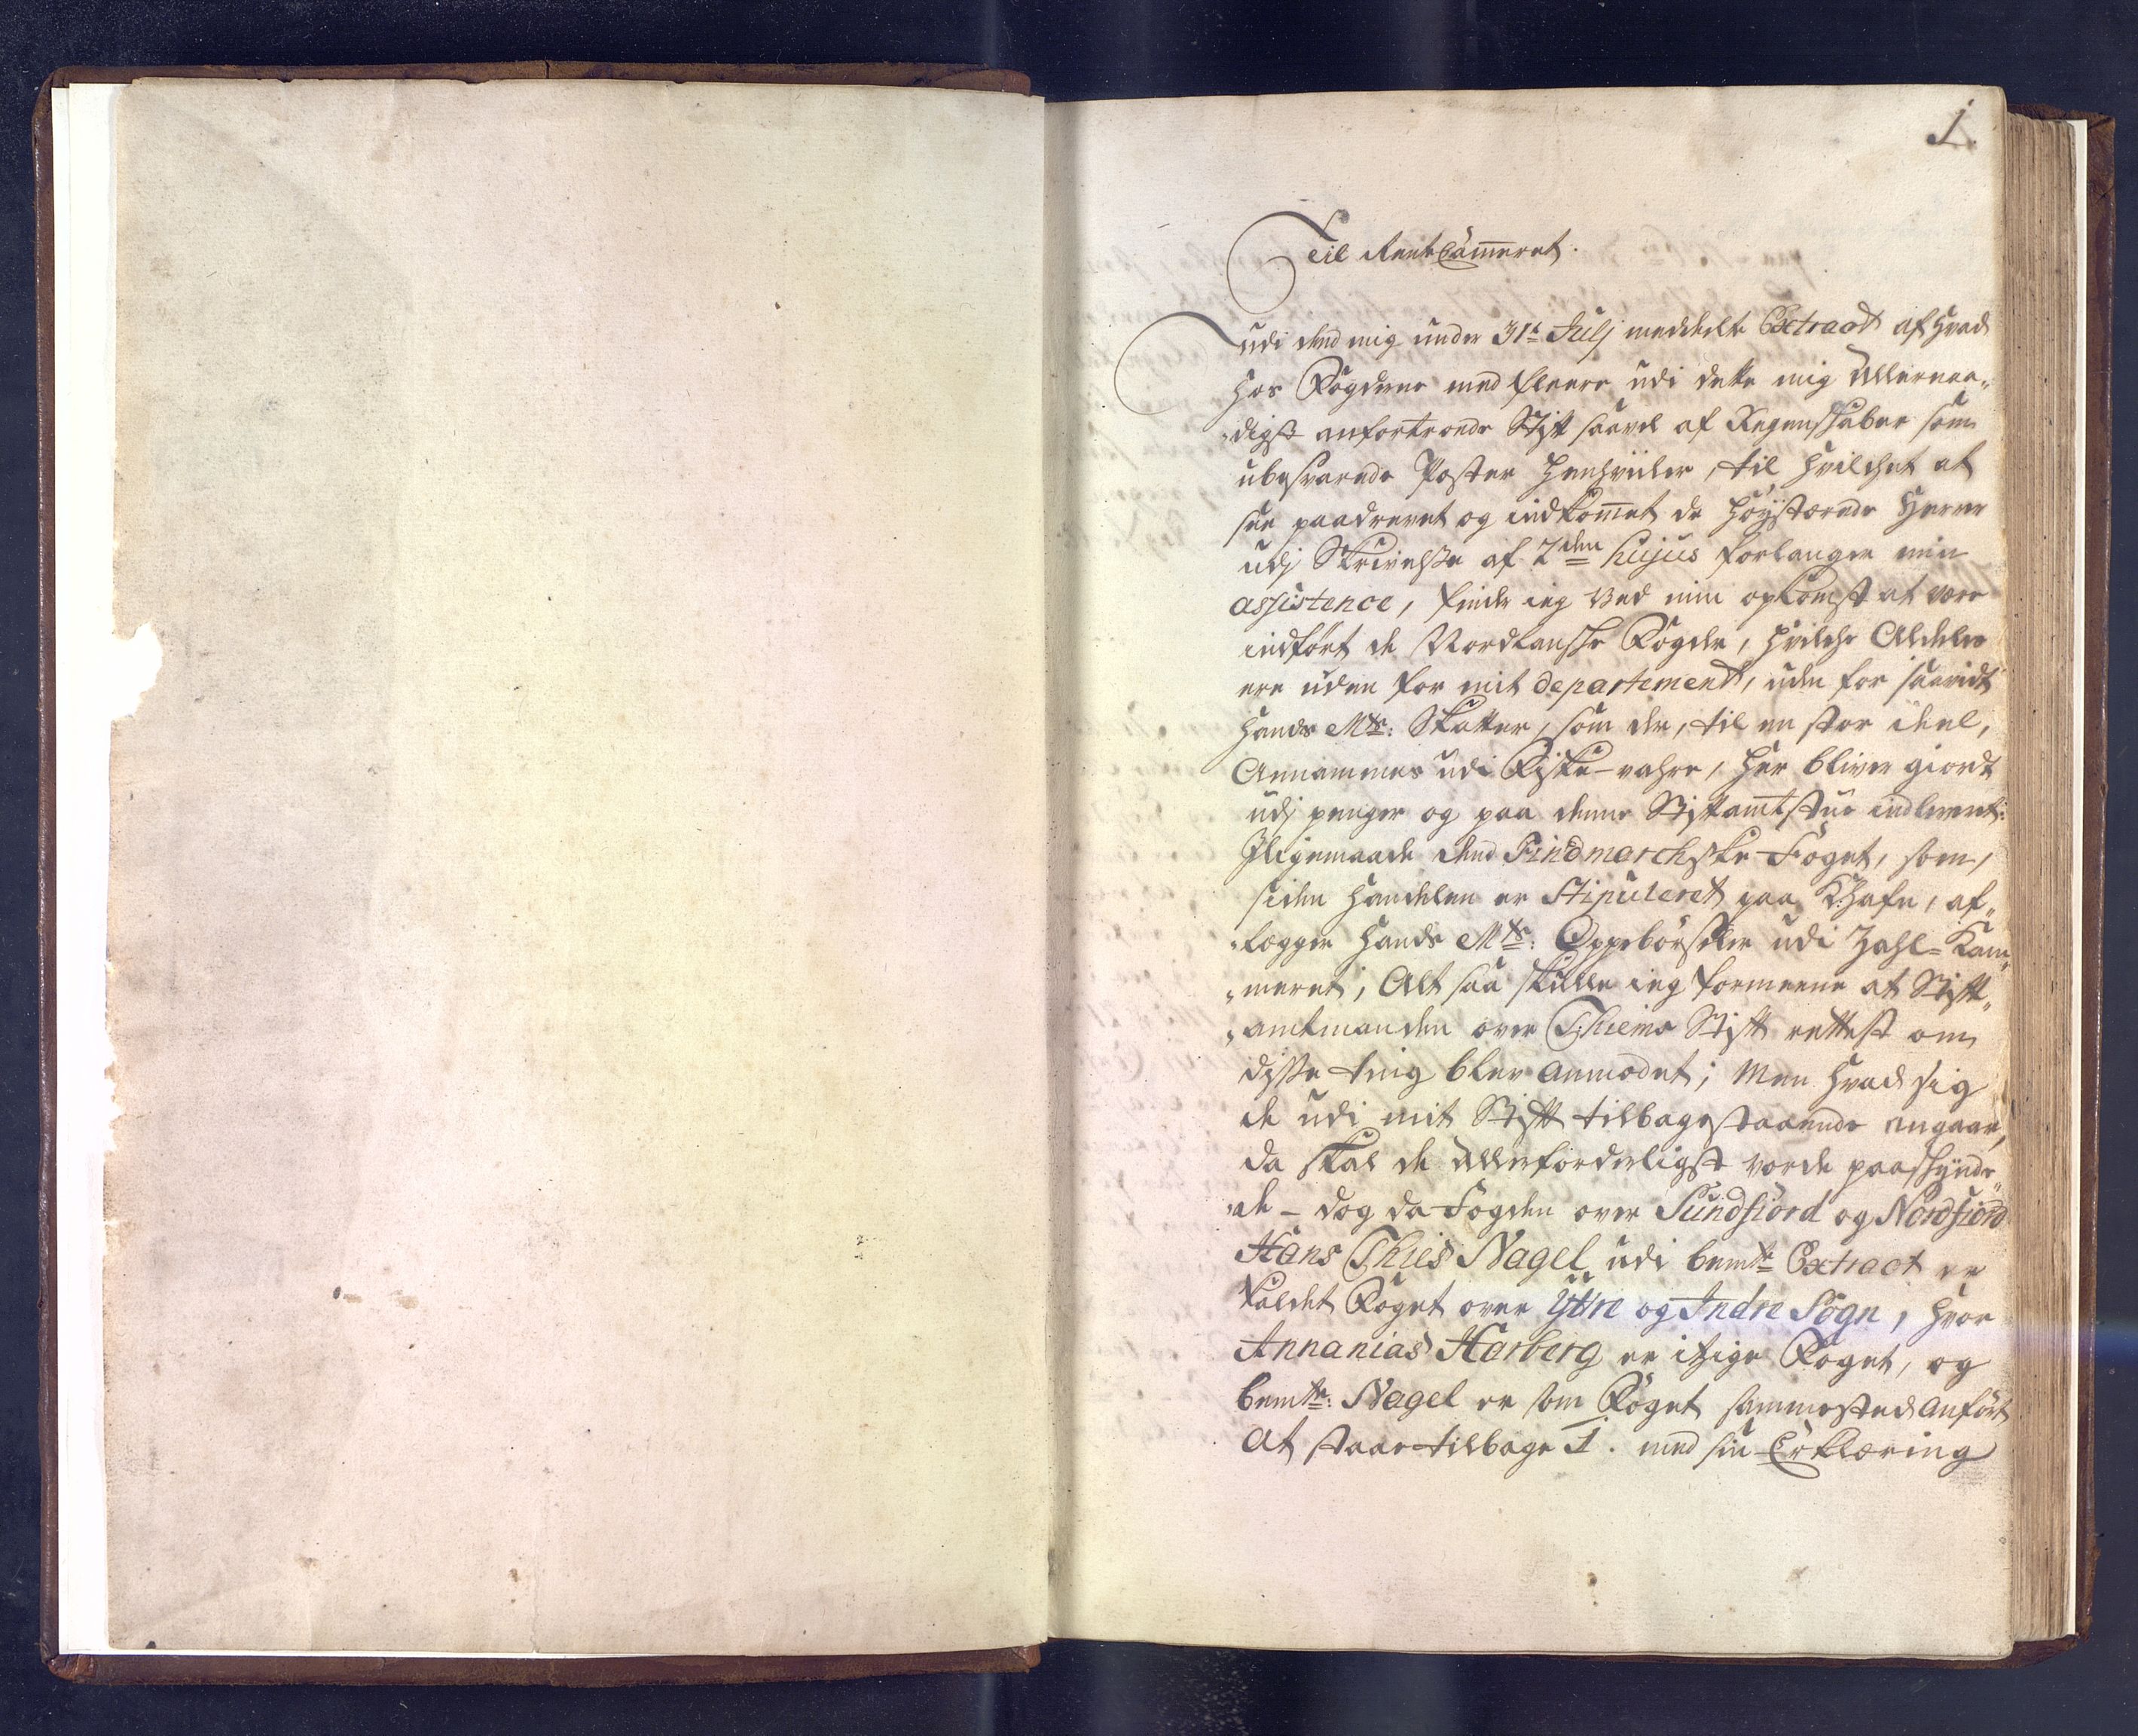 1.
Til RenteCammeret.
udi dend mig under 31te Julj meddeelte Extract af hvad
hos Fogderne med fleere udi dette mig Allernaa„
„digst anfortroede Stift saavel af Regenskaber som
ubesvarede Poster henhviiler, til hvilchet at
faae paadrevet og indkommet de höystærede Herrer
udj Skrivelsse af 2den hujus forlanger min
assistence, finder ieg ved min opkomst at være
indfört de Nordlanske Fögder, hvilche Aldeles
ere uden for mit departement, uden for saavidt
Hands Mts: Skatter, som der, til en stor deel,
Annammes udi Fiske-vahre, her bliver giordt
udj penger og paa denne Stiftamtstue indleveret:
Jligemaade dend Findmarchske Foget, som,
siden Handelen er Stipuleret paa Khafn, af„
„lægger Hands Mts: Oppebörsler udi Zahl-Kam„
„meret; Alt saa skulle ieg formeene at Stift„
„amtmanden over Thiems Stift rettest om
disse ting blev anmodet; Men hvad sig
de udi mit Stift tilbagestaaende angaar,
da skal de Allerforderligst vorde paaskynde„
„de - dog da Fogden over Sundfiord og Nordfiord
Hans Thies Nagel udi bemte Extract er
kaldet Foget over Yttre og Indre Sogn, hvor
Annanias Harberg er itzige Foget, og
bemte: Nagel er som Foget sammested anfört
at staae tilbage 1. med sin Erklæring